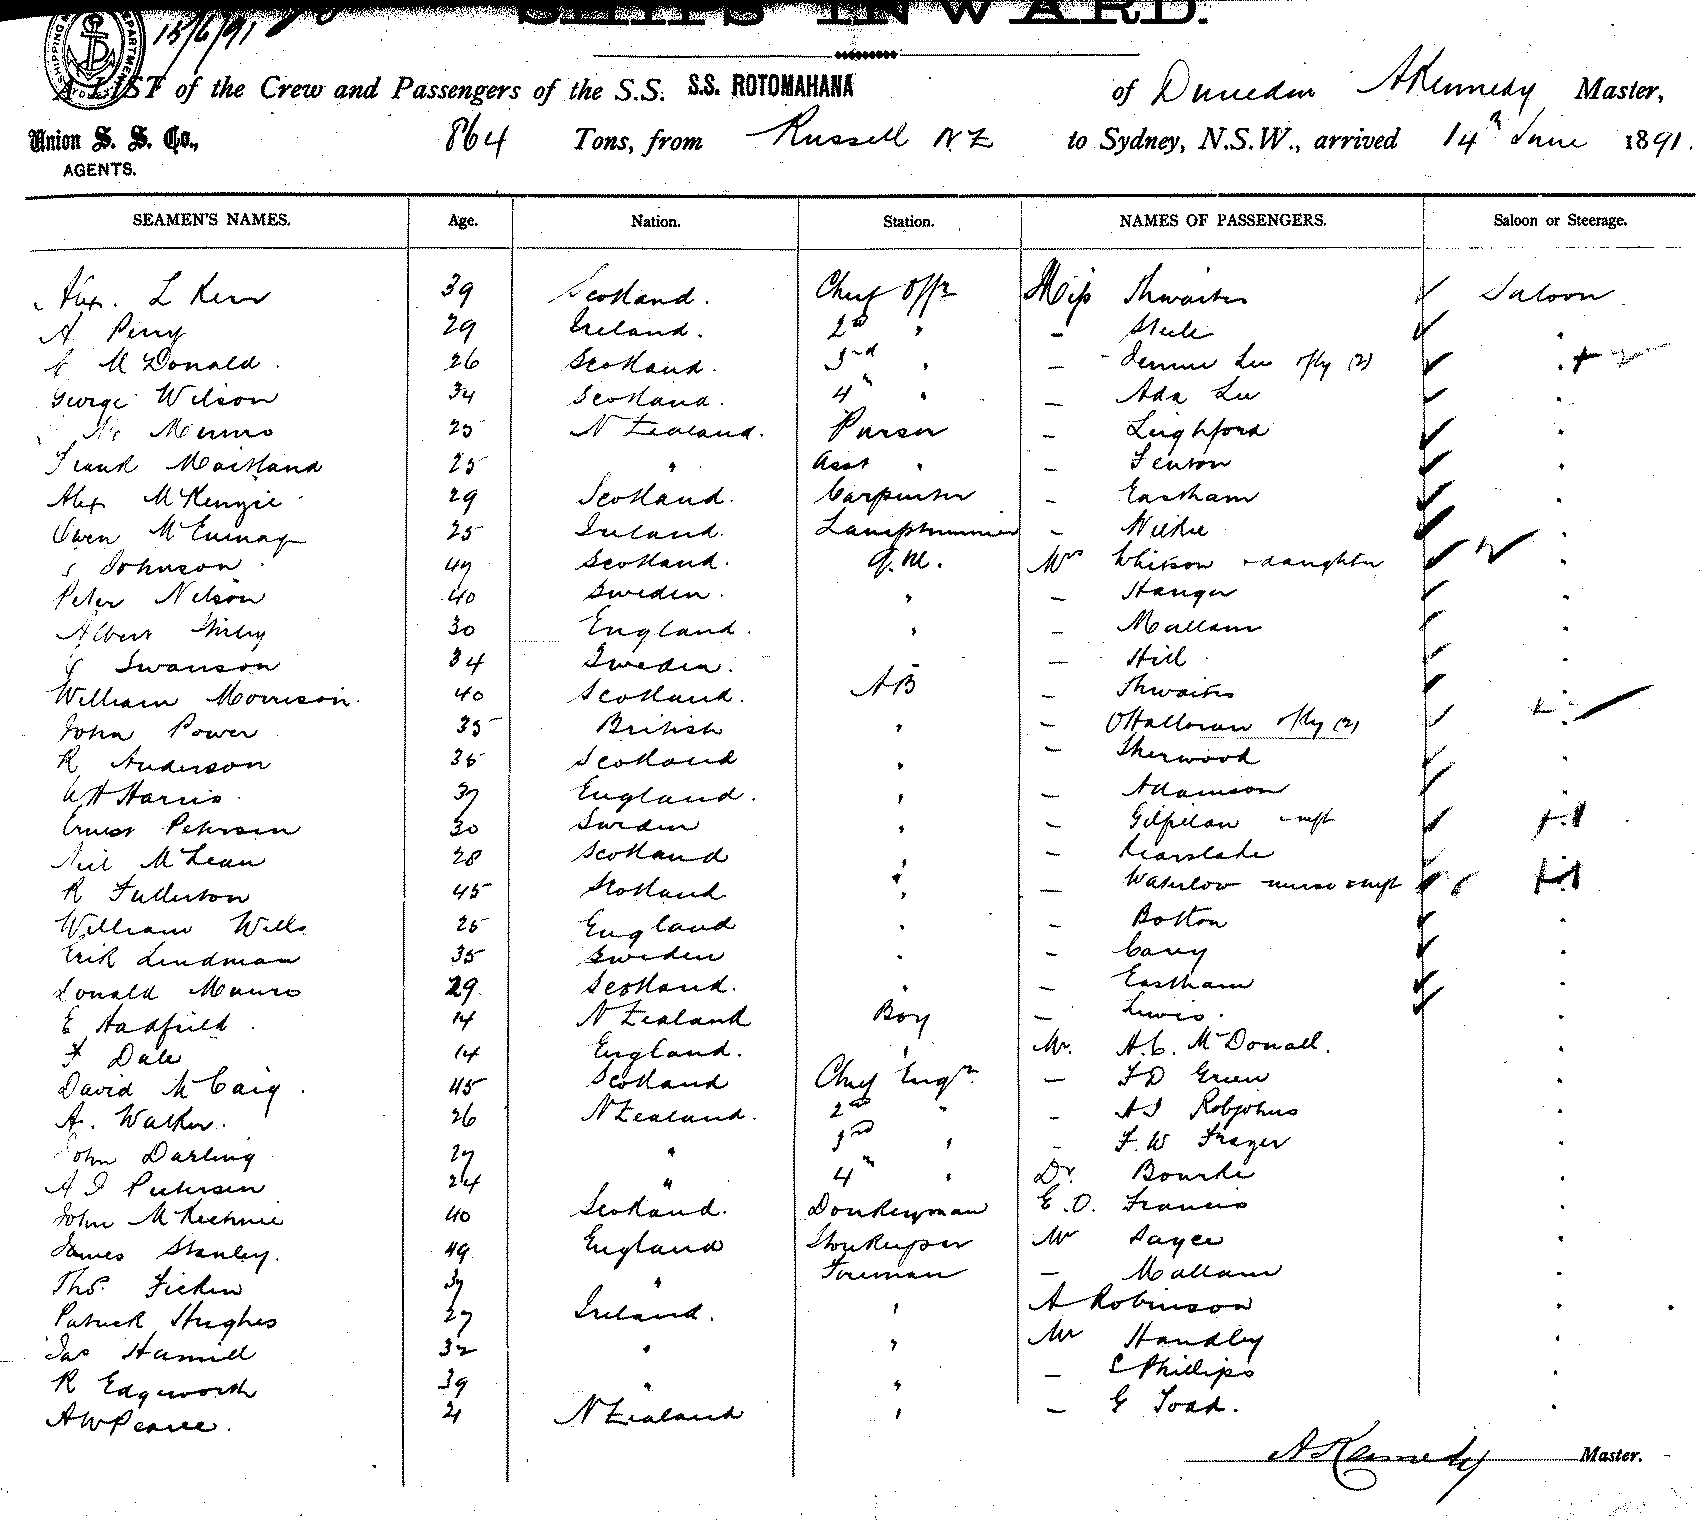 SHIPS INWARD.
15/6/91
A LIST of the Crew and Passengers of the S.S. S.S. ROTOMAHANA of Dunedin AKennedy Master,
Union S. S. Co., 864 Tons, from Russell NZ to Sydney, N.S.W., arrived 14th June 1891.
AGENTS.
SEAMEN'S NAMES. Age. Nation. Station. NAMES OF PASSENGERS. Saloon or Steerage.
Alex. L Kerr 39 Scotland. Chief Offr Miss Thwaites Saloon
A Perry 29 Ireland. 2nd " - Steele "
McDonald. 26 Scotland. 3rd " - Jennie Lee (2) "
George Wilson 34 Scotland. 4th " - Ada Lee "
Munro 25 N Zealand. Purser - Leighford "
Frank Maitland 25 " Asst " - Fenton "
Alex McKenzie 29 Scotland. Carpenter - Eastham "
Owen 25 Ireland. Lamptrimmer - Wilkie "
Johnson 47 Scotland. Q.M. Mrs Whitson + daughter "
Peter Nelson 40 Sweden. " - Hanger "
Albert 30 England. " - Mallam "
Swanson 34 Sweden. " - Hill "
William Morrison. 40 Scotland. AB - Thwaites "
John Power 35 British " - OHalloran (2) "
R Anderson 35 Scotland " - Sherwood "
Harris 37 England. " - Adamson "
Ernest Petersen 30 Sweden " - Gilfillan "
Neil McLean 28 Scotland " - Kearslake "
R Fullerton 45 Scotland " - Waterlow nurse "
William Wills 25 England " - Botton "
Erik Lindman 35 Sweden " - Cavy "
Donald Munro 29 Scotland. " - Eastham "
E Hadfield 14 N Zealand Boy - Lewis. "
F Dale 14 England. " Mr. A.C. McDonall. "
David McCaig. 45 Scotland Chief Engr. - F D Green "
A. Walker. 26 N Zealand. 2nd " - A J Robjohns "
John Darling 27 " 3rd " - F. W Frazer "
A J Petersen 24 " 4th " Dr. Bourke "
John McKechnie 40 Scotland. Donkeyman E. O. Francis "
James Stanley. 49 England Storekeeper Mr Sayce "
Thos. Ficken 37 " Fireman - Mallam "
Patrick Hughes 27 Ireland. " A Robinson "
Jas Hamill 32 " " Mr Handley "
R Edgeworth 39 " " - C Phillips "
A W Pearce. 21 N Zealand " - G Todd. "
A Kennedy Master.